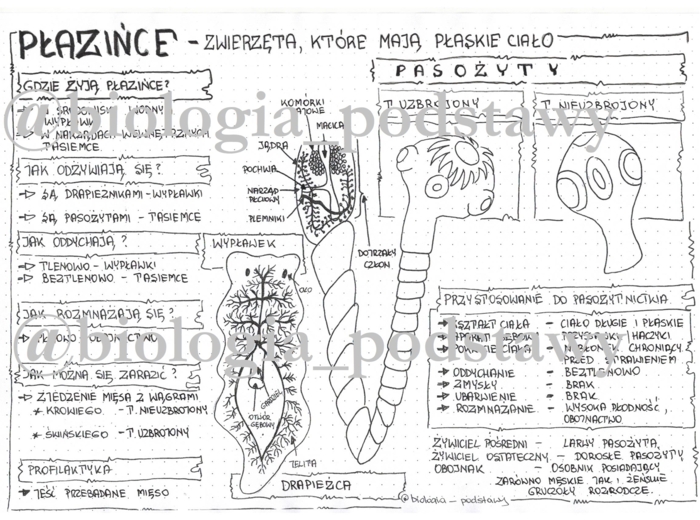 PŁAZIŃCE - ZWIERZĘTA, KTÓRE MAJĄ PŁASKIE CIAŁO
GDZIE ŻYJĄ PŁAZIŃCE?
→ W ŚRODOWISKU WODNYM
WYPŁAWKI
→ W NARZĄDACH WEWNĘTRZNYCH
TASIEMCE
JAK ODŻYWIAJĄ SIĘ?
→ SĄ DRAPIEŻNIKAMI - WYPŁAWKI
→ SĄ PASOŻYTAMI - TASIEMCE
JAK ODDYCHAJĄ?
→ TLENOWO - WYPŁAWKI
→ BEZTLENOWO - TASIEMCE
JAK ROZMNAŻAJĄ SIĘ?
→ PŁCIOWO - OBOJNACTWO
JAK MOŻNA SIĘ ZARAZIĆ?
→ ZJEDZENIE MIĘSA Z WĄGRAMI
* KROWIEGO - T. NIEUZBROJONY
* ŚWIŃSKIEGO - T. UZBROJONY
PROFILAKTYKA
→ JEŚĆ PRZEBADANE MIĘSO
WYPŁAWEK
OKO
GARDZIEL
OTWÓR
GĘBOWY
JELITA
DRAPIEŻCA
KOMÓRKI
JAJOWE
MACICA
JĄDRA
POCHWA
NARZĄD
PŁCIOWY
PLEMNIKI
DOJRZAŁY
CZŁON
PASOŻYTY
T. UZBROJONY
T. NIEUZBROJONY
PRZYSTOSOWANIE DO PASOŻYTNICTWA
→ KSZTAŁT CIAŁA - CIAŁO DŁUGIE I PŁASKIE
→ APARAT GĘBOWY - PRZYSSAWKI, HACZYKI
→ POKRYCIE CIAŁA - NABŁONEK CHRONIĄCY
PRZED STRAWIENIEM
→ ODDYCHANIE - BEZTLENOWO
→ ZMYSŁY - BRAK
→ UBARWIENIE - BRAK
→ ROZMNAŻANIE - WYSOKA PŁODNOŚĆ,
OBOJNACTWO
ŻYWICIEL POŚREDNI - LARWY PASOŻYTA,
ŻYWICIEL OSTATECZNY - DOROSŁE PASOŻYTY
OBOJNAK - OSOBNIK POSIADAJĄCY
ZARÓWNO MĘSKIE JAK I ŻEŃSKIE
GRUCZOŁY ROZRODCZE.
@biologia_podstawy
@biologia_podstawy
@biologia_podstawy